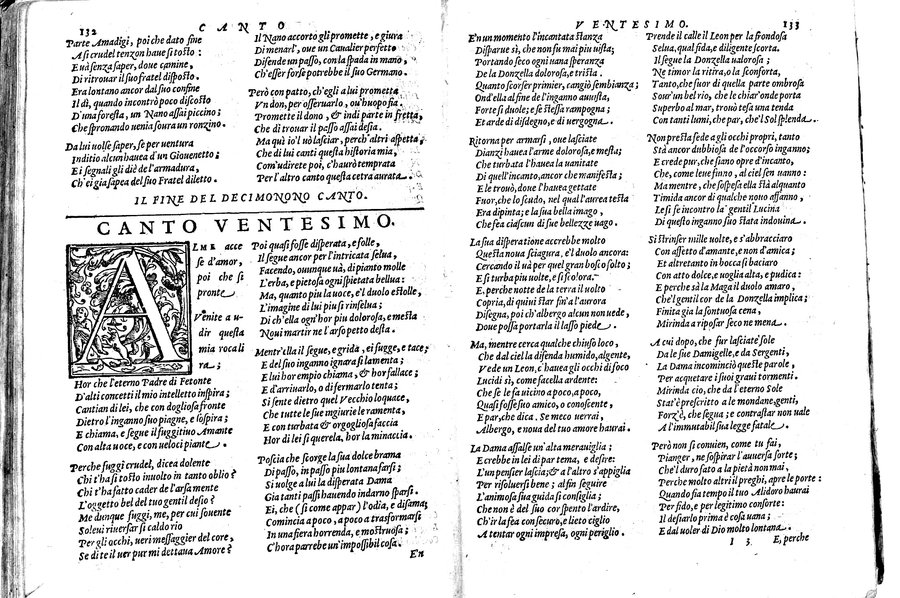 132
CANTO
Parte Amadigi, poi che dato fine
A si crudel tenzon haue si tosto:
Euà senza saper, doue camine,
Di ritrouar il suo fratel disposto.
Era lontano ancor dal suo confine
Il dì, quando incontrò poco discosto
D'una foresta, un Nano assai piccino;
Che spronando uenia soura un ronzino.
Da lui uolse saper, se per uentura
Inditio alcun haueua d'un Giouenetto;
Ei segnali gli diè de l'armadura,
Ch'ei gia sapea del suo Fratel diletto.
Il Nano accorto gli promette, e giura
Di menarl', oue un Caualier perfetto
Difende un passo, con la spada in mano,
Ch'esser forse potrebbe il suo Germano.
Però con patto, ch'egli a lui prometta
Vn don, per osseruarlo, ou'huopo fia.
Promette il dono, & indi parte in fretta,
Che di trouar il passo assai desia.
Ma quì io'l uò lasciar, perch'altri aspetta,
Che di lui canti questa historia mia,
Com'udirete poi, c'haurò temprata
Per l'altro canto questa cetra aurata.
IL FINE DEL DECIMONONO CANTO.
CANTO VENTESIMO.
ALME acce
se d'amor,
poi che si
pronte
Venite a u-
dir questa
mia rocali
ra;
Hor che l'eterno Padre di Fetonte
D'alti concetti il mio intelletto inspira;
Cantian di lei, che con dogliosa fronte
Dietro l'inganno suo piagne, e sospira;
E chiama, e segue il fuggitiuo Amante
Con alta uoce, e con ueloci piante.
Perche fuggi crudel, dicea dolente
Chi t'ha sì tosto inuolto in tanto oblio?
Chi t'ha fatto cader de l'arsa mente
L'oggetto bel del tuo gentil desio?
Me dunque fuggi, me, per cui souente
Soleui riuersar sì caldo rio
Per gli occhi, ueri messaggier del core,
Se di te il uer pur mi dettaua Amore?
Poi quasi fosse disperata, e folle,
Il segue ancor per l'intricata selua,
Facendo, ouunque uà, di pianto molle
L'erba, e pietosa ogni spietata belua:
Ma, quanto piu la uoce, e'l duolo estolle,
L'imagine di lui piu si rinselua;
Di ch'ella ogni hor piu dolorosa, e mesta
Noui martir ne l'arso petto desta.
Mentr'ella il segue, e grida, ei fugge, e tace;
E del suo inganno ignara si lamenta;
E lui hor empio chiama, & hor fallace;
E d'arriuarlo, o di fermarlo tenta;
Si sente dietro quel Vecchio loquace,
Che tutte le sue ingiurie le ramenta,
E con turbata & orgogliosa faccia
Hor di lei si querela, hor la minaccia.
Poscia che scorge la sua dolce brama
Di passo, in passo piu lontana farsi;
Si uolge a lui la disperata Dama
Gia tanti passi hauendo indarno sparsi.
Ei, che (si come appar) l'odia, e disama;
Comincia a poco, a poco a trasformarsi
In una fiera horrenda, e mostruosa;
C'hora parrebbe un'impossibil cosa.
En
VENTESIMO.
133
En un momento l'incantata stanza
Disparue sì, che non fu mai piu uista;
Portando seco ogni uana speranza
De la Donzella dolorosa, e trista.
Quanto scorser primier, cangiò sembianza;
Ond'ella al fine de l'inganno auuista,
Forte si duole; e se stessa rampogna;
Et arde di disdegno, e di uergogna.
Ritorna per armarsi, oue lasciate
Dianzi hauea l'arme dolorosa, e mesta;
Che turbata l'hauea la uanitate
Di quell'incanto, ancor che manifesta;
E le trouò, doue l'hauea gettate
Fuor, che lo scudo, nel qual l'aurea testa
Era dipinta; e la sua bella imago,
Che fea ciascun di sue bellezze uago.
La sua disperatione accrebbe molto
Questa noua sciagura, e'l duolo ancora:
Cercando il uà per quel gran bosco folto;
E si turba piu uolte, e si scolora.
E, perche notte de la terra il uolto
Copria, di quiui star fin a l'aurora
Disegna, poi ch'albergo alcun non uede,
Doue possa portarla il lasso piede.
Ma, mentre cerca qualche chiuso loco,
Che dal ciel la difenda humido, algente,
Vede un Leon, c'hauea gli occhi di foco
Lucidi sì, come facella ardente:
Che se le fa uicino a poco, a poco,
Quasi fosse suo amico, o conoscente,
E par, che dica. Se meco uerrai,
Albergo, e noua del tuo amore haurai.
La Dama assalse un'alta merauiglia;
E crebbe in lei di par tema, e desire:
L'un pensier lascia; & a l'altro s'appiglia
Per risoluersi bene; al fin seguire
L'animosa sua guida si consiglia;
Che non è del suo cor spento l'ardire,
Ch'ir la fea con securo, e lieto ciglio
A tentar ogni impresa, ogni periglio.
Prende il calle il Leon per la frondosa
Selua, qual fida, e diligente scorta.
Il segue la Donzella ualorosa;
Ne timor la ritira, o la sconforta,
Tanto, che fuor di quella parte ombrosa
Sour'un bel rio, che le chiar'onde porta
Superbo al mar, trouò tesa una tenda
Con tanti lumi, che par, che'l Sol splenda.
Non presta fede a gli occhi propri, tanto
Stà ancor dubbiosa de l'occorso inganno;
E crede pur, che siano opre d'incanto,
Che, come leue sonno, al ciel sen uanno:
Ma mentre, che sospesa ella stà alquanto
Timida ancor di qualche nouo affanno,
Le si fe incontro la gentil Lucina
Di questo inganno suo stata indouina.
Si strinser mille uolte, e s'abbracciaro
Con affetto d'amante, e non d'amica;
Et altretanto in bocca si baciaro
Con atto dolce, e uoglia alta, e pudica:
E perche sà la Maga il duolo amaro,
Che'l gentil cor de la Donzella implica;
Finita gia la sontuosa cena,
Mirinda a riposar seco ne mena.
A cui dopo, che fur lasciate sole
Da le sue Damigelle, e da Sergenti,
La Dama incominciò queste parole,
Per acquetare i suoi graui tormenti.
Mirinda cio, che da l'eterno Sole
Stat'è prescritto a le mondane genti,
Forz'è, che segua; e contrastar non uale
A l'immutabil sua legge fatale.
Però non si conuien, come tu fai,
Pianger, ne sospirar l'auuersa sorte;
Che'l duro fato a la pietà non mai,
Perche molto altri il preghi, apre le porte:
Quando fia tempo il tuo Alidoro haurai
Per fido, e per legitimo consorte:
Il desiarlo prima è cosa uana;
E dal uoler di Dio molto lontana.
I 3
E, perche